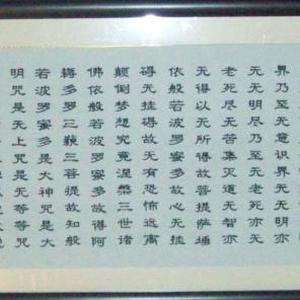 界乃至无意识界无无明亦
无无明尽乃至无老死亦无
老死尽无苦集灭道无智亦
无得以无所得故菩提萨埵
依般若波罗蜜多故心无挂
碍无挂碍故无有恐怖远离
颠倒梦想究竟涅槃三世诸
佛依般若波罗蜜多故得阿
耨多罗三藐三菩提故知般
若波罗蜜多是大神咒是大
明咒是无上咒是无等等咒